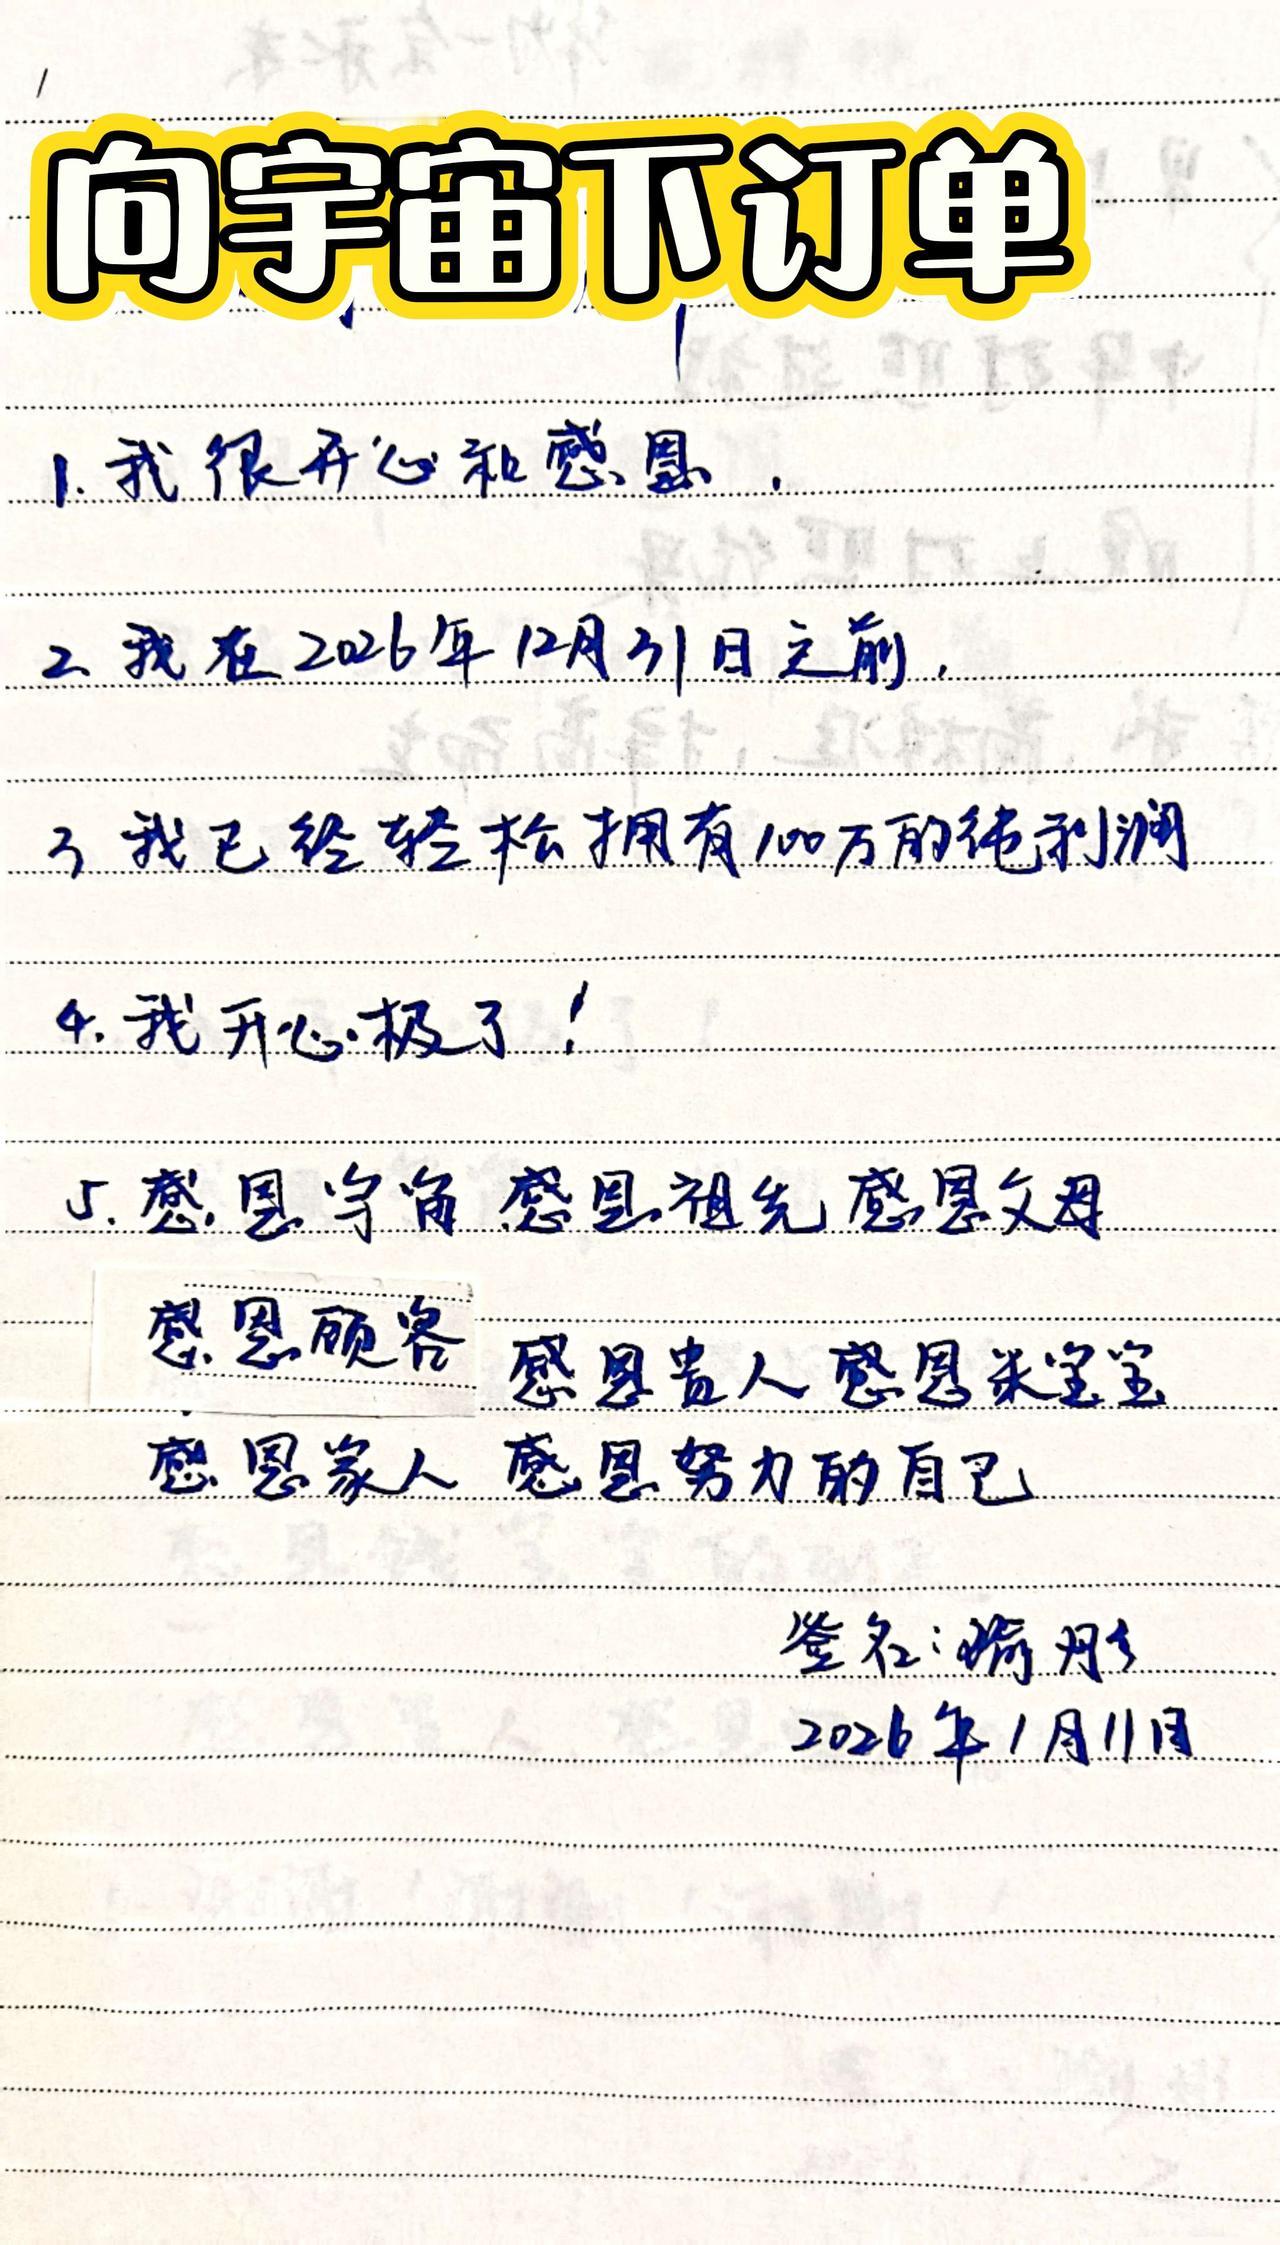 向宇宙下订单
1. 我很开心和感恩.
2. 我在2026年12月31日之前,
3 我已经轻松拥有100万的纯利润
4. 我开心极了!
5. 感恩宇宙 感恩祖先 感恩父母
感恩顾客 感恩贵人 感恩米宝宝
感恩家人 感恩努力的自己
签名:
2026年1月11日